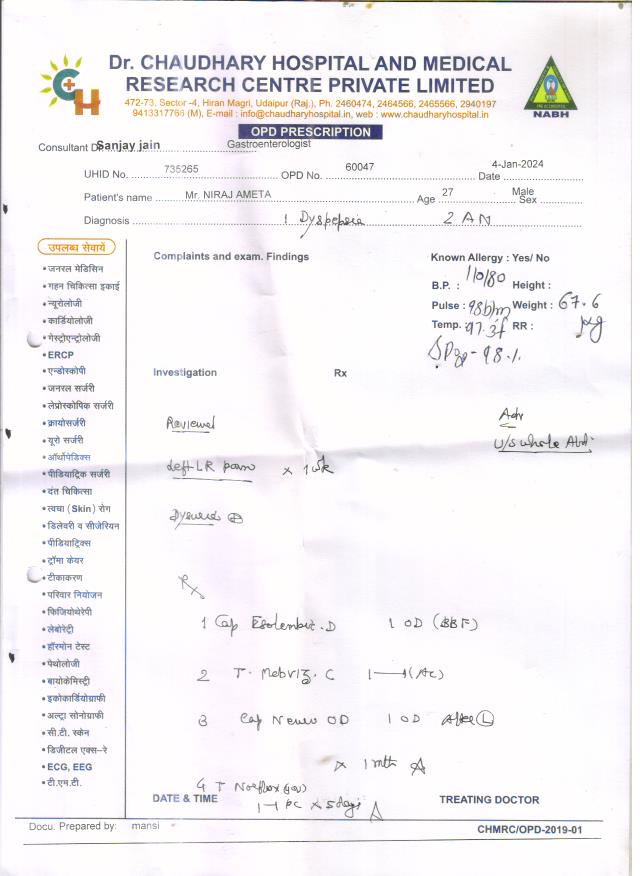 Dr. CHAUDHARY HOSPITAL AND MEDICAL
RESEARCH CENTRE PRIVATE LIMITED
472-73, Sector -4, Hiran Magri, Udaipur (Raj.), Ph. 2460474, 2464566, 2465566, 2940197
9413317766 (M), E-mail : info@chaudharyhospital.in, web : www.chaudharyhospital.in
NABH
OPD PRESCRIPTION
Consultant Dr. Sanjay jain Gastroenterologist
UHID No. 735265 OPD No. 60047 Date 4-Jan-2024
Patient's name Mr. NIRAJ AMETA Age 27 Sex Male
Diagnosis 1 Dyspepsia 2 AN
उपलब्ध सेवायें
Complaints and exam. Findings
Known Allergy : Yes/ No
B.P. : 110/80 Height :
Pulse : 98b/m Weight : 67.6 kg
Temp. 97.3f RR :
SPO2 - 98%
Investigation Rx
• जनरल मेडिसिन
• गहन चिकित्सा इकाई
• न्यूरोलोजी
• कार्डियोलोजी
• गेस्ट्रोएन्ट्रोलोजी
• ERCP
• एन्डोस्कोपी
• जनरल सर्जरी
• लेप्रोस्कोपिक सर्जरी
• क्रायोसर्जरी
• यूरो सर्जरी
• ऑर्थोपेडिक्स
• पीडियाट्रिक सर्जरी
• दंत चिकित्सा
• त्वचा (Skin) रोग
• डिलेवरी व सीजेरियन
• पीडियाट्रिक्स
• ट्रॉमा केयर
• टीकाकरण
• परिवार नियोजन
• फिजियोथेरेपी
• लेबोरेट्री
• हॉरमोन टेस्ट
• पेथोलोजी
• बायोकेमिस्ट्री
• इकोकार्डियोग्राफी
• अल्ट्रा सोनोग्राफी
• सी.टी. स्केन
• डिजीटल एक्स-रे
• ECG, EEG
• टी.एम.टी.
Reviewed
Adv
U/S whole Abd.
Left LR pain x 1 wk
Dysuria ⊕
Rx
1 Cap Esolembit.D 1 OD (BBF)
2 T. Mebviz. C 1—1 (AC)
3 Cap Neuro OD 1 OD After (L)
x 1 mth
4 T Norflox (400)
1-1 PC x 5 days
DATE & TIME TREATING DOCTOR
Docu. Prepared by: mansi CHMRC/OPD-2019-01